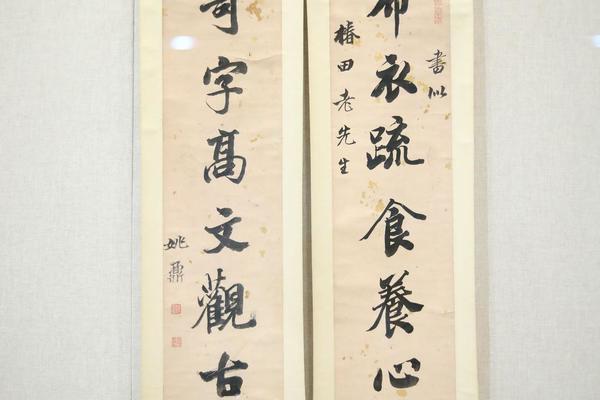 書似
布衣疏食養心
椿田老先生
奇字高文觀古
姚鼐